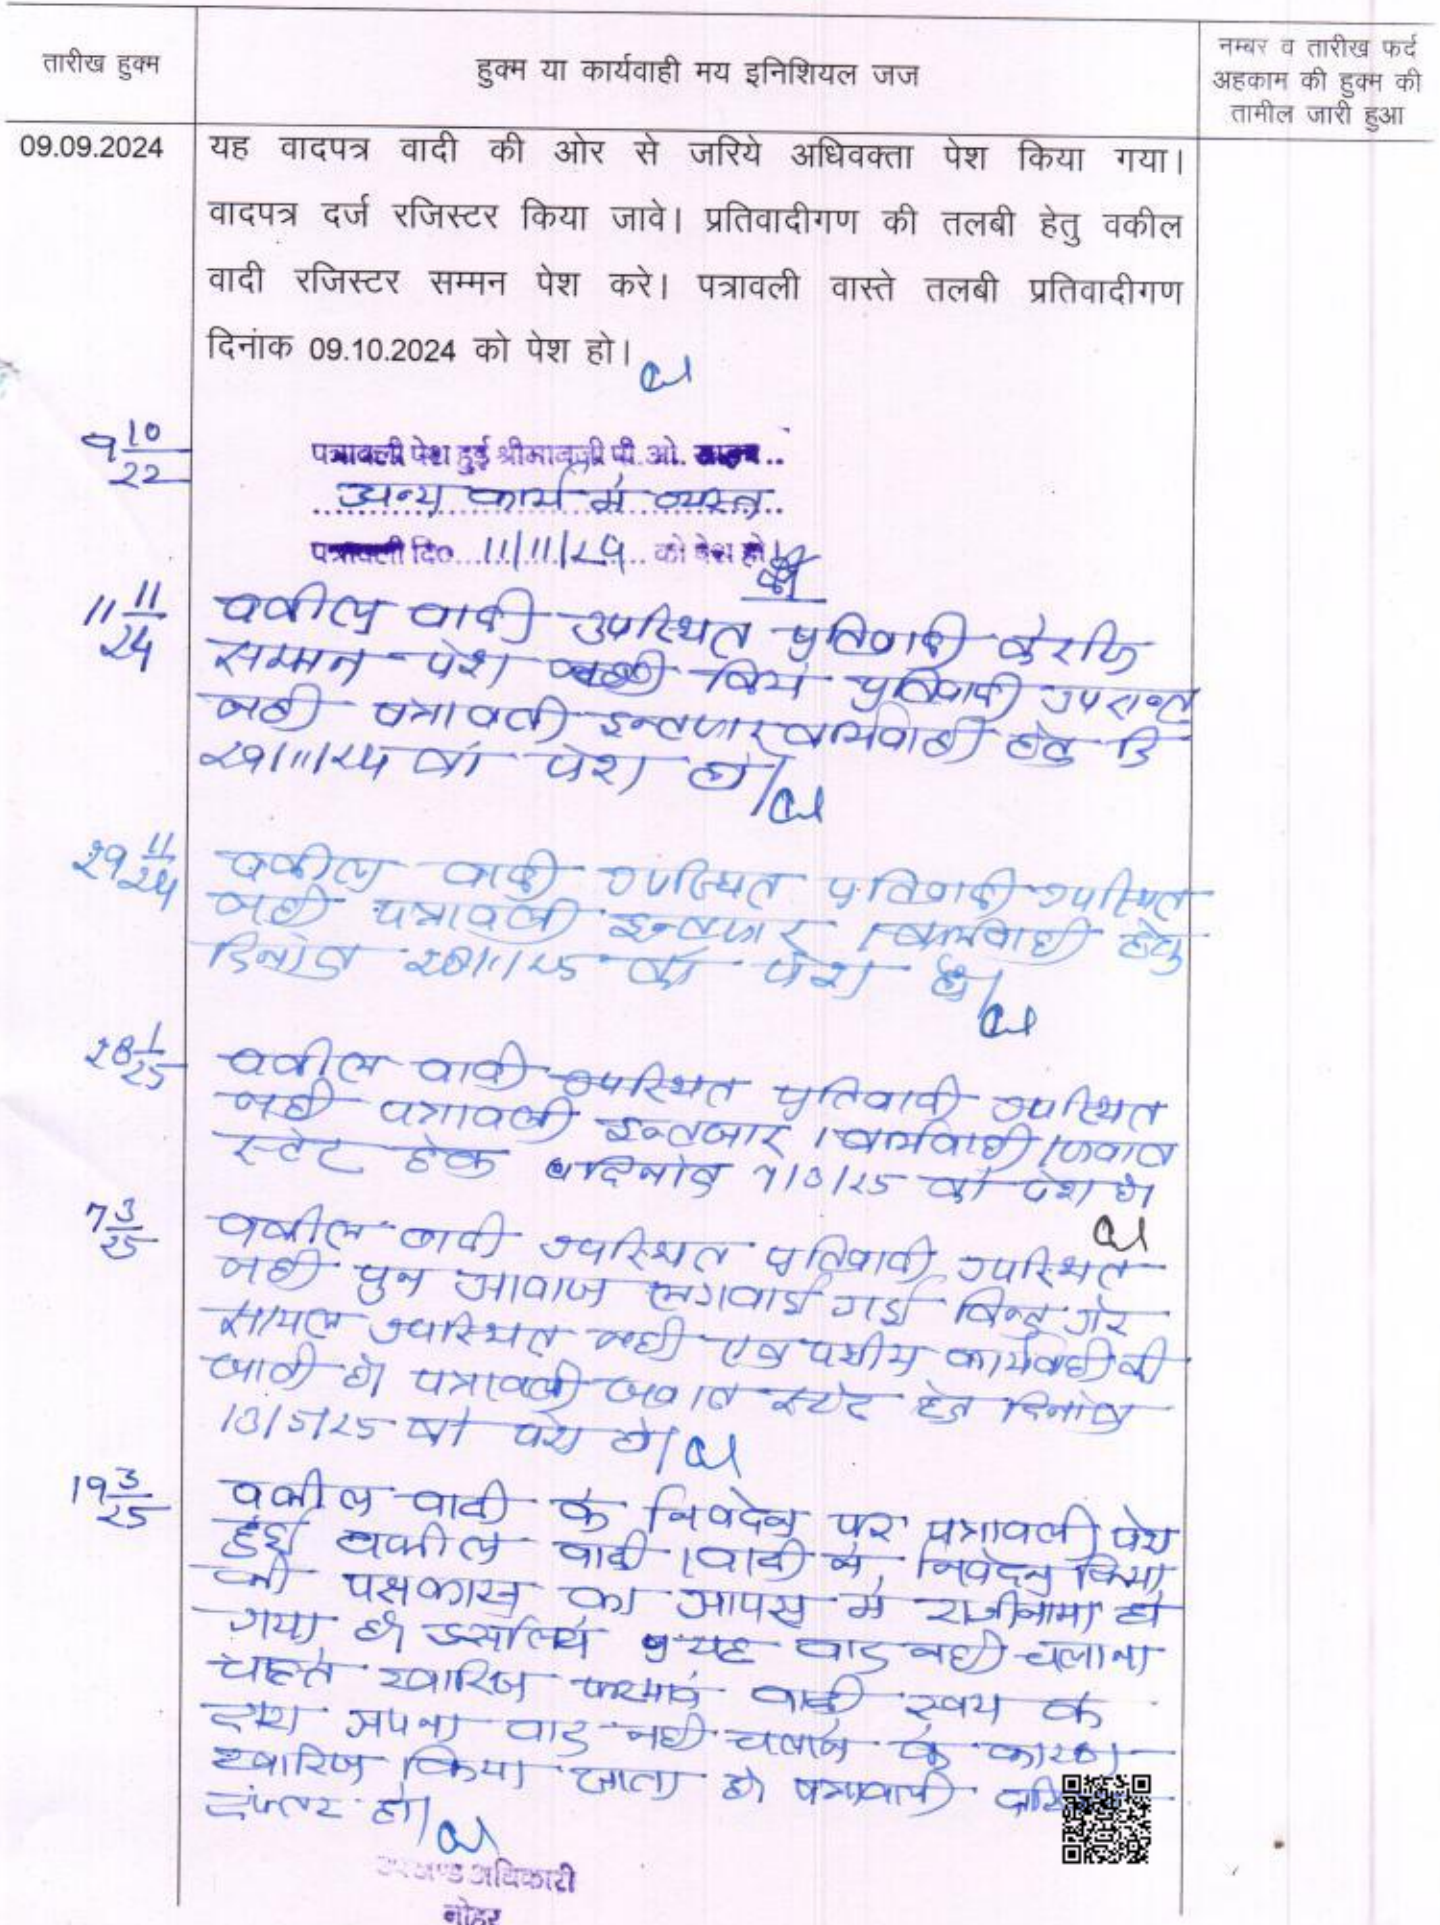 तारीख हुक्म
हुक्म या कार्यवाही मय इनिशियल जज
नम्बर व तारीख फर्द
अहकाम की हुक्म की
तामील जारी हुआ
09.09.2024
यह वादपत्र वादी की ओर से जरिये अधिवक्ता पेश किया गया।
वादपत्र दर्ज रजिस्टर किया जावे। प्रतिवादीगण की तलबी हेतु वकील
वादी रजिस्टर सम्मन पेश करे। पत्रावली वास्ते तलबी प्रतिवादीगण
दिनांक 09.10.2024 को पेश हो।
9 10/22
पत्रावली पेश हुई श्रीमानजी पी.ओ. साहब..
अन्य कार्य में व्यस्त
पत्रावली दि०...11/11/24.. को पेश हो
11 11/24
वकील वादी उपस्थित प्रतिवादी के रजि
सम्मन पेश नही किये प्रतिवादी
नही पत्रावली इन्तजार कार्यवाही हेतु दि
29/11/24 को पेश हो।
29 11/24
वकील वादी उपस्थित प्रतिवादी उपस्थित
नही पत्रावली इन्तजार / कार्यवाही हेतु
दिनांक 28/1/25 को पेश हो।
28 1/25
वकील वादी उपस्थित प्रतिवादी उपस्थित
नही पत्रावली इन्तजार / कार्यवाही / जवाब
स्टेट हेतु दिनांक 7/3/25 को पेश हो
7 3/25
वकील वादी उपस्थित प्रतिवादी उपस्थित
नही पुन आवाज लगवाई गई किन्तु गैर
सायल उपस्थित नही एक पक्षीय कार्यवाही की
जाती है पत्रावली जवाब स्टेट हेतु दिनांक
13/5/25 को पेश हो।
19 3/25
वकील वादी के निवेदन पर पत्रावली पेश
हुई वकील वादी / वादी ने निवेदन किया
की पक्षकारान का आपस मे राजीनामा हो
गया है इसलिये यह वाद नही चलाना
चाहते खारिज फरमावे वादी स्वयं के
द्वारा अपना वाद नही चलाने के कारण
खारिज किया जाता है पत्रावली
दफ्तर हो।
उपखण्ड अधिकारी
नोहर